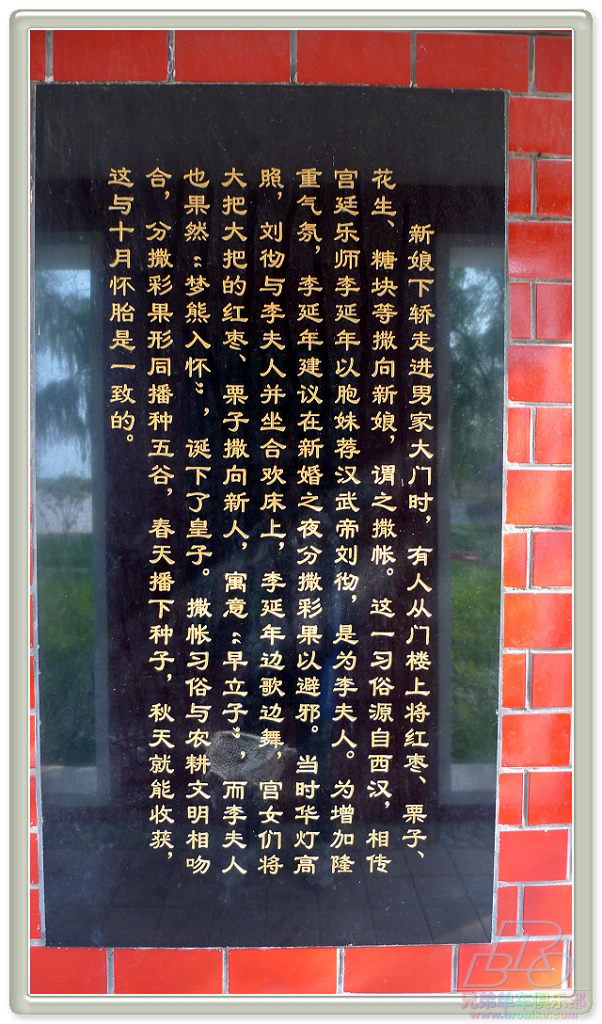 新娘下轿走进男家大门时，有人从门楼上将红枣、栗子、
花生、糖块等撒向新娘，谓之撒帐。这一习俗源自西汉，相传
宫廷乐师李延年以胞妹荐汉武帝刘彻，是为李夫人。为增加隆
重气氛，李延年建议在新婚之夜分撒彩果以避邪。当时华灯高
照，刘彻与李夫人并坐合欢床上，李延年边歌边舞，宫女们将
大把大把的红枣、栗子撒向新人，寓意“早立子”，而李夫人
也果然“梦熊入怀”，诞下了皇子。撒帐习俗与农耕文明相吻
合，分撒彩果形同播种五谷，春天播下种子，秋天就能收获，
这与十月怀胎是一致的。
BRO
兄弟单车俱乐部
www.brobike.com